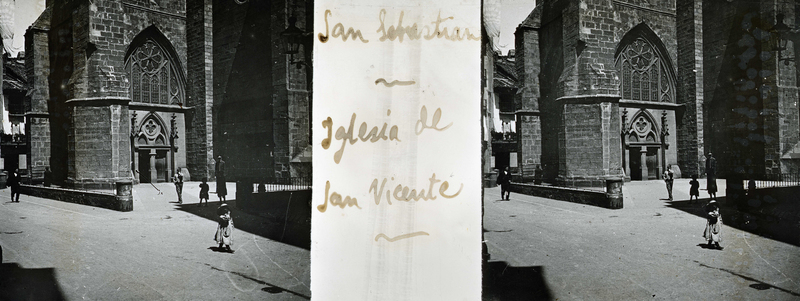 San Sebastian
Iglesia de
San Vicente